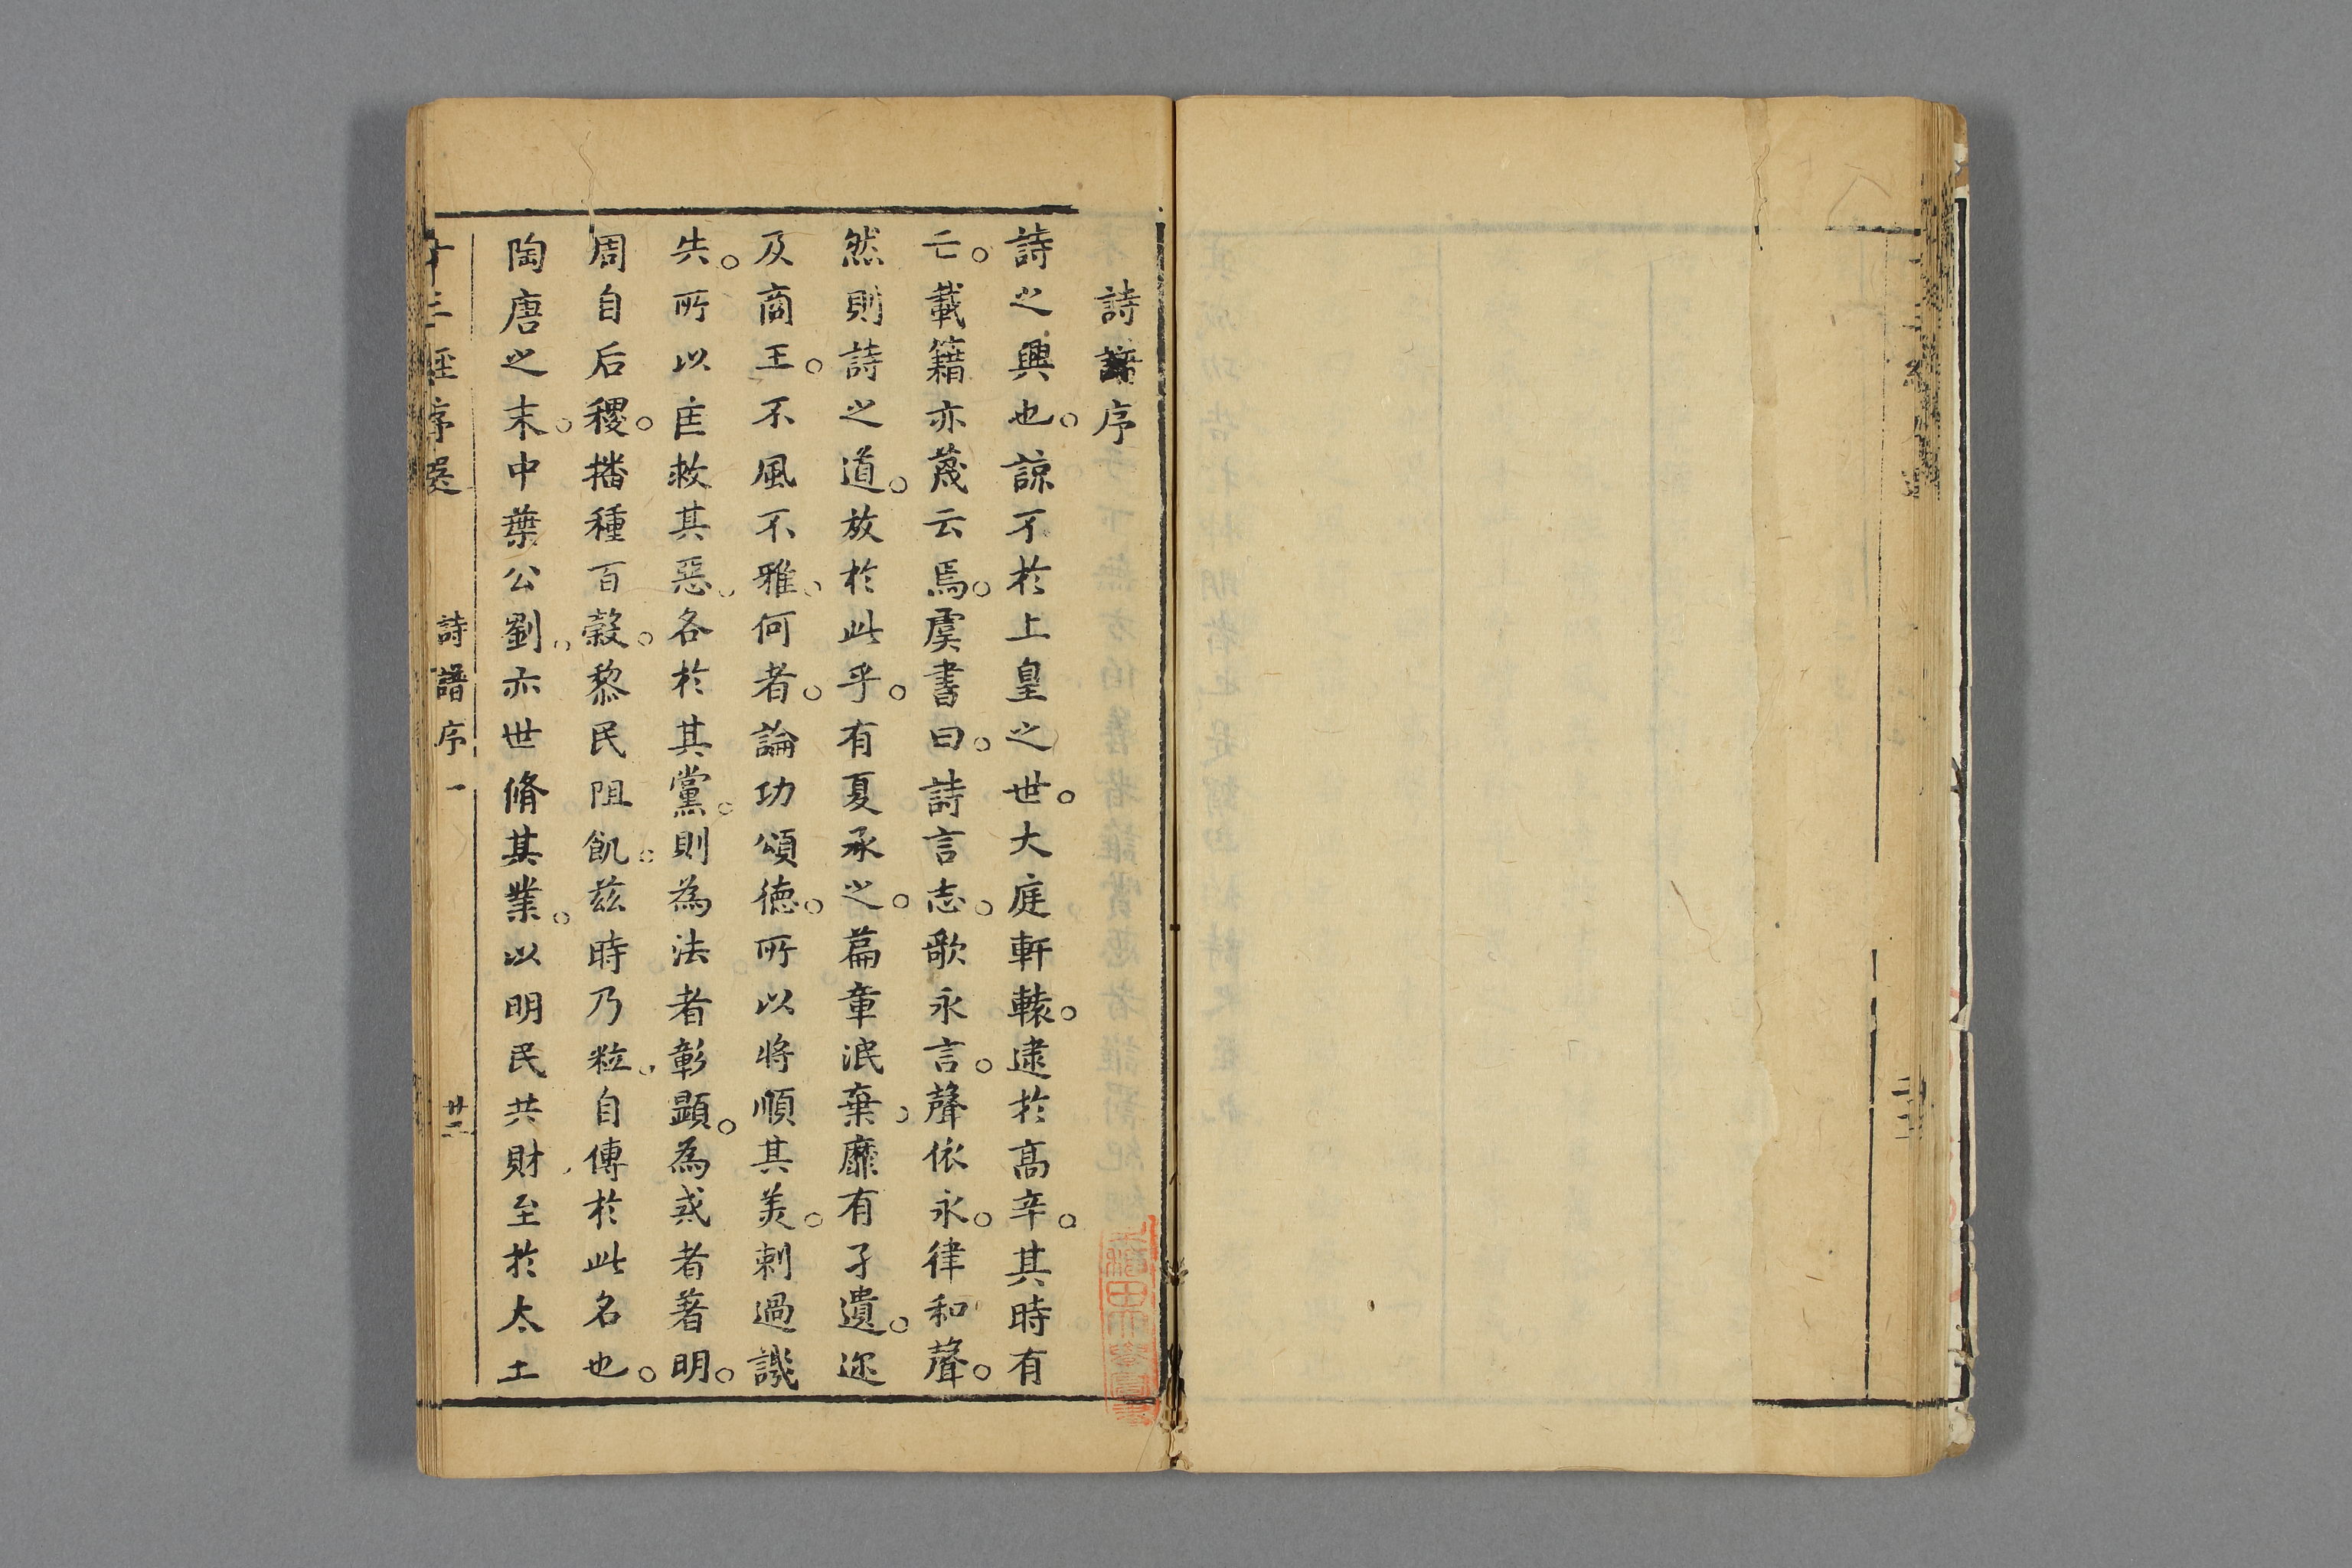 詩譜序
詩之興也。諒不於上皇之世。大庭軒轅。逮於高辛。其時有
亡。載籍亦蔑云焉。虞書曰。詩言志。歌永言。聲依永。律和聲。
然則詩之道。放於此乎。有夏承之。篇章泯棄。靡有孑遺。迩
及商王。不風不雅。何者。論功頌德。所以將順其美。刺過譏
失。所以匡救其惡。各於其黨。則為法者彰顯。為戒者著明。
周自后稷。播種百穀。黎民阻飢。茲時乃粒。自傳於此名也。
陶唐之末。中葉公劉。亦世脩其業。以明民共財至於太土
十三經序選 詩譜序 一 廿二